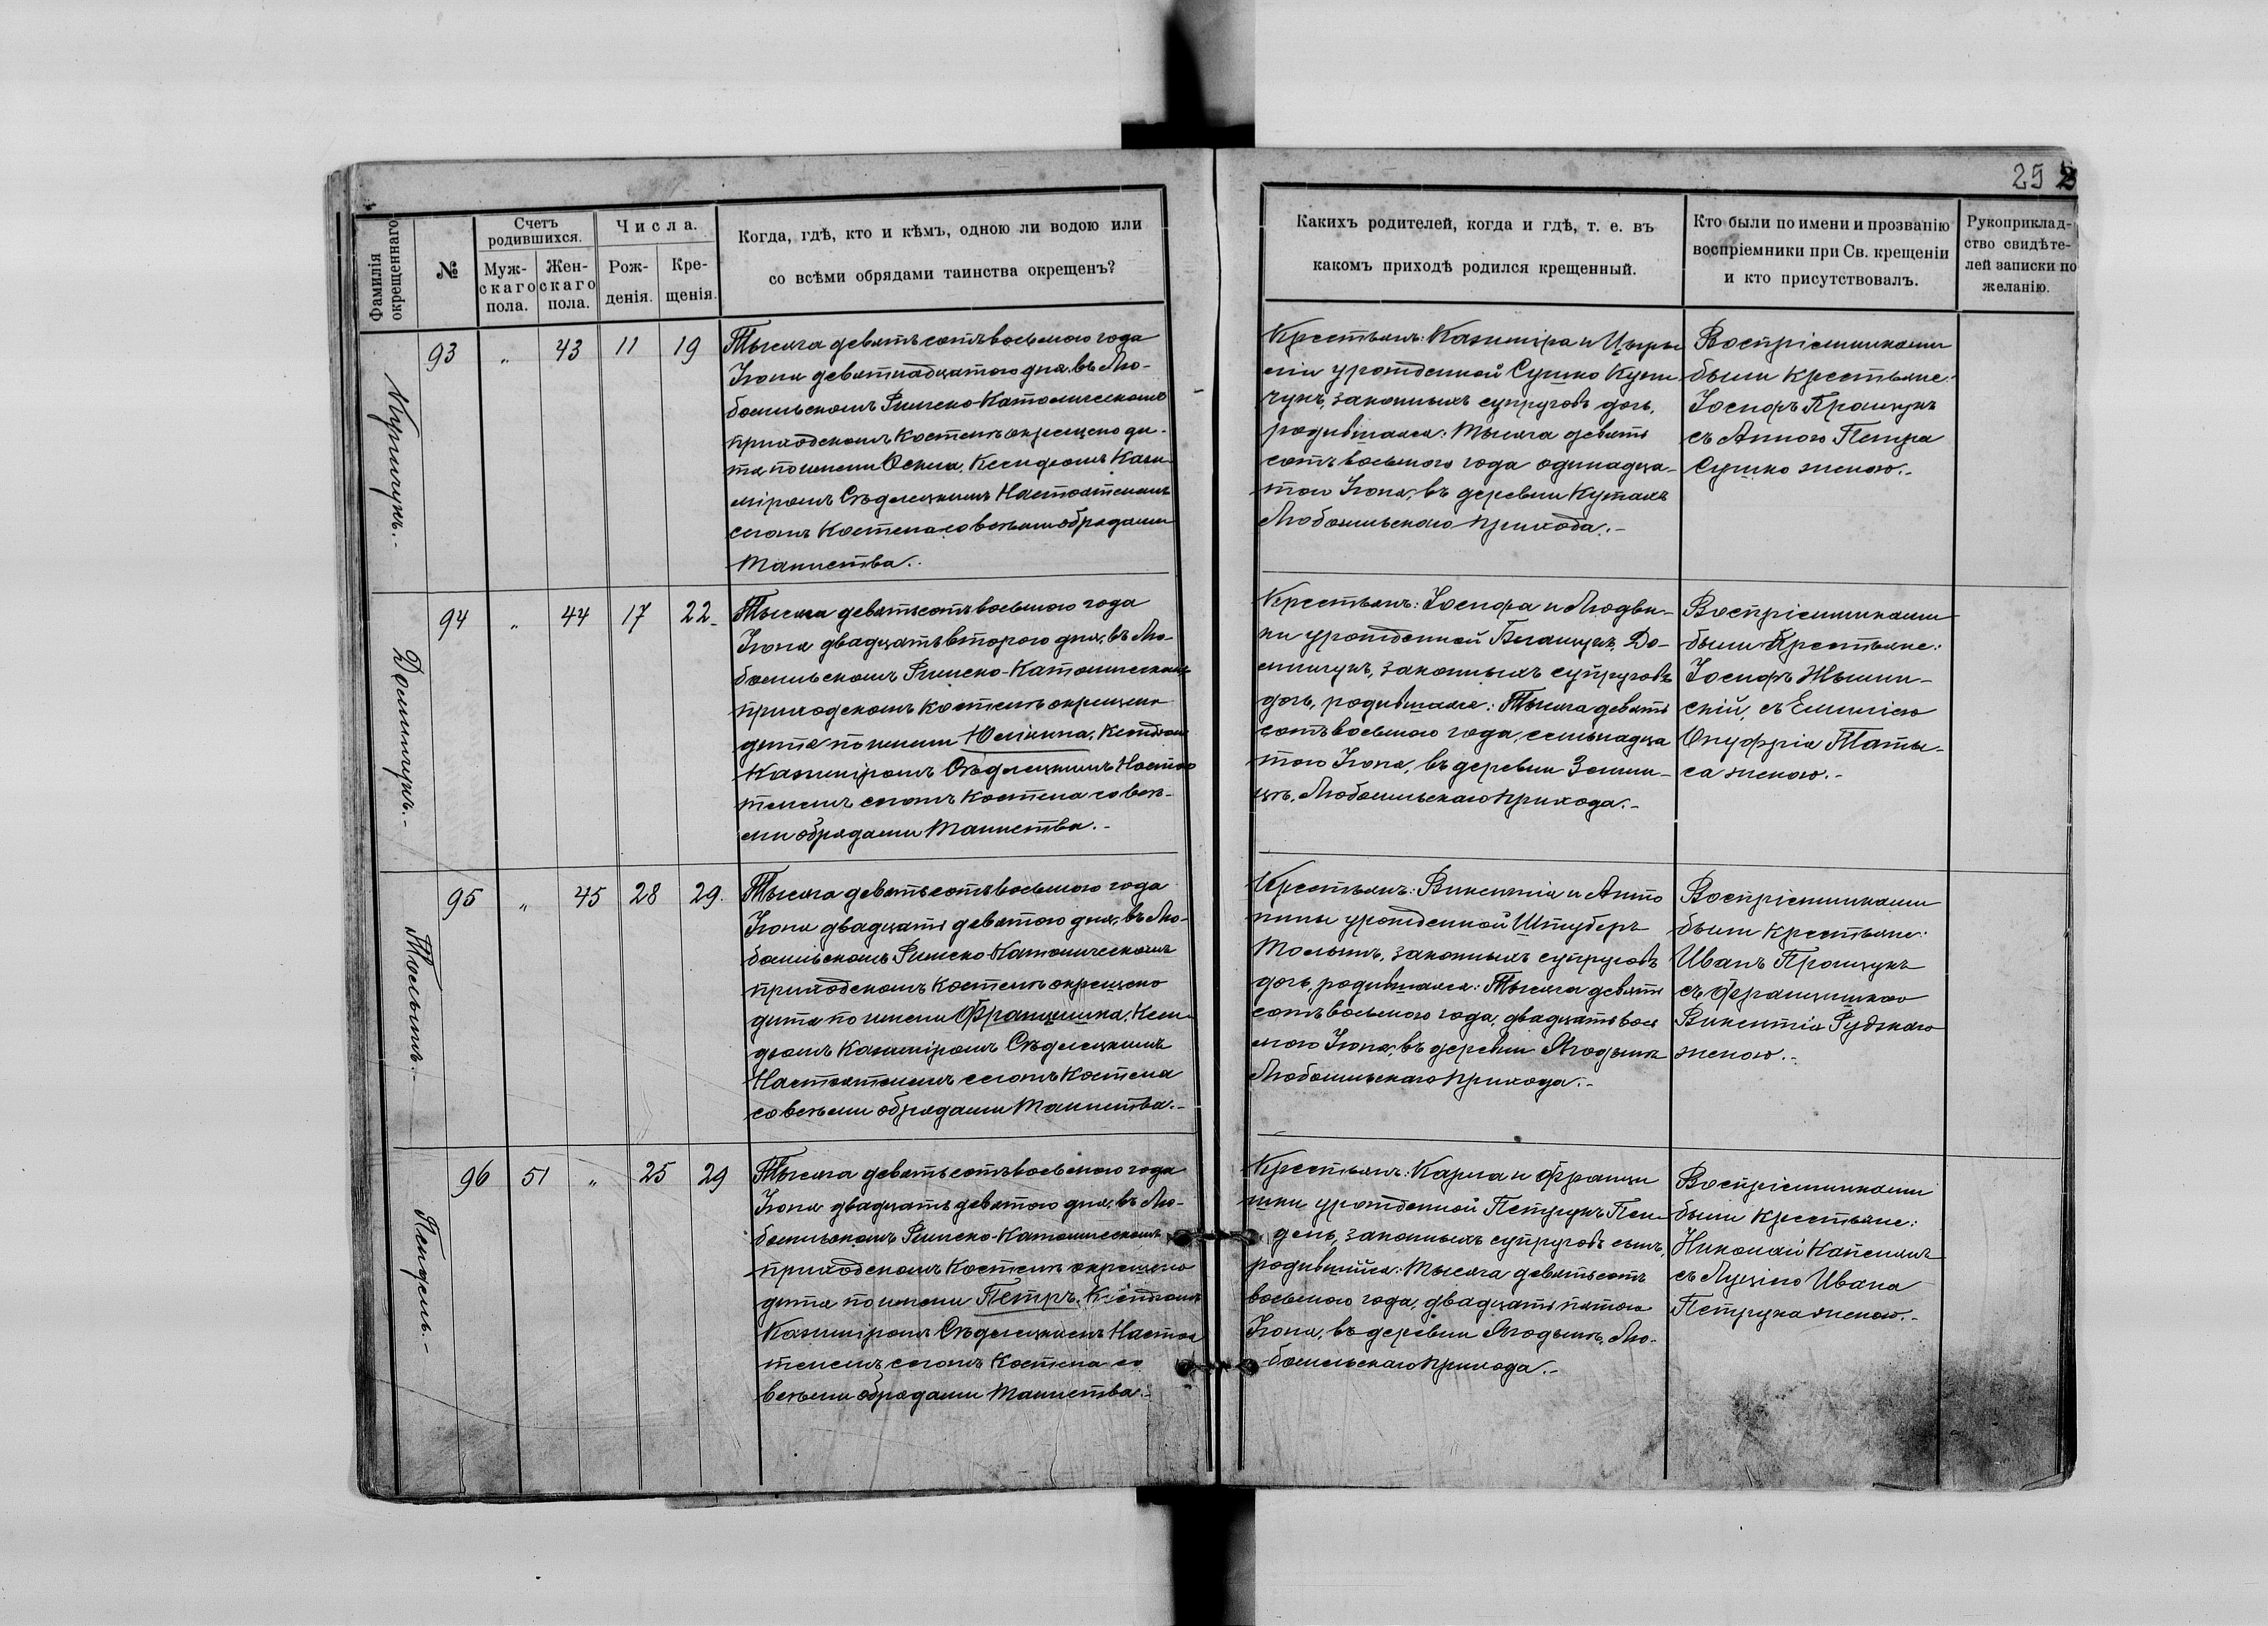 25
Фамилія окрещеннаго
№
Счетъ родившихся.
Муж-скаго пола.
Жен-скаго пола.
Числа.
Рож-денія.
Кре-щенія.
Когда, гдѣ, кто и кѣмъ, одною ли водою или
со всѣми обрядами таинства окрещенъ?
Какихъ родителей, когда и гдѣ, т. е. въ
какомъ приходѣ родился крещенный.
Кто были по имени и прозванію
воспріемники при Св. крещеніи
и кто присутствовалъ.
Рукоприклад-
ство свидѣте-
лей записки по
желанію.
93 " 43 11 19
Тысяча девятьсотъ восьмого года
Іюня девятнадцатого дня, въ Лю-
бомльскомъ Римско-Католическомъ
приходскомъ костелѣ окрещено ди-
тя по имени Ксендзомъ Кази-
міромъ Сѣдлецкимъ Настоятелемъ
сегожъ Костела со всѣми обрядами
Таинства.
Крестьянъ: Казиміра и
урожденной Сушко
законныхъ супруговъ дочь,
родившаяся: Тысяча девять
сотъ восьмого года одинадца-
того Іюня, въ деревни Кутахъ
Любомльскаго прихода.-
Воспріемниками
были крестьяне:
Іосифъ Процукъ
съ Анною Петра
Сушко женою.-
94 " 44 17 22
Домичукъ.-
Тысяча девятьсотъ восьмого года
Іюня двадцать второго дня, въ Лю-
бомльскомъ Римско-Католическомъ
приходскомъ костелѣ окрещено
дитя по имени Юліанна, Ксендзомъ
Казиміромъ Сѣдлецкимъ Настоя
телемъ сегожъ Костела со всѣ-
ми обрядами Таинства.-
Крестьянъ: Іосифа и Людви-
ки урожденной До-
мичукъ, законныхъ супруговъ
дочь, родившаяся: Тысяча девять
сотъ восьмого года, семьнадца
того Іюня, въ деревни Земли-
цѣ, Любомльскаго прихода.-
Воспріемниками
были Крестьяне:
Іосифъ
скій, съ Емиліею
Онуфрія Таты-
са женою.-
95 " 45 28 29.
Тысяча девятьсотъ восьмого года
Іюня двадцать девятого дня, въ Лю-
бомльскомъ Римско-Католическомъ
приходскомъ костелѣ окрещено
дитя по имени Францишка, Ксен-
дзомъ Казиміромъ Сѣдлецкимъ
Настоятелемъ сегожъ Костела
со всѣми обрядами Таинства.-
Крестьянъ: Викентія и Анто
нины урожденной Штуберъ
законныхъ супруговъ
дочь, родившаяся: Тысяча девять
сотъ восьмого года, двадцать вось
мого Іюня, въ деревни Ягодынѣ
Любомльскаго прихода.-
Воспріемниками
были крестьяне:
Иванъ Процукъ
съ Францишкою
Викентія Рудзкаго
женою.-
96 51 " 25 29
Пендель.-
Тысяча девятьсотъ восьмого года
Іюня двадцать девятого дня, въ Лю-
бомльскомъ Римско-Католическомъ
приходскомъ Костелѣ окрещено
дитя по имени Петръ, Ксендзомъ
Казиміромъ Сѣдлецкимъ Настоя
телемъ сегожъ Костела со
всѣми обрядами Таинства.-
Крестьянъ: Карла и Франци
шки урожденной Петрукъ Пен-
дель, законныхъ супруговъ сынъ,
родившійся: Тысяча девятьсотъ
восьмого года, двадцать пятого
Іюня, въ деревни Ягодынѣ, Лю-
бомльскаго прихода.-
Воспріемниками
были крестьяне:
Николай
съ Луціею Ивана
Петрука женою.-